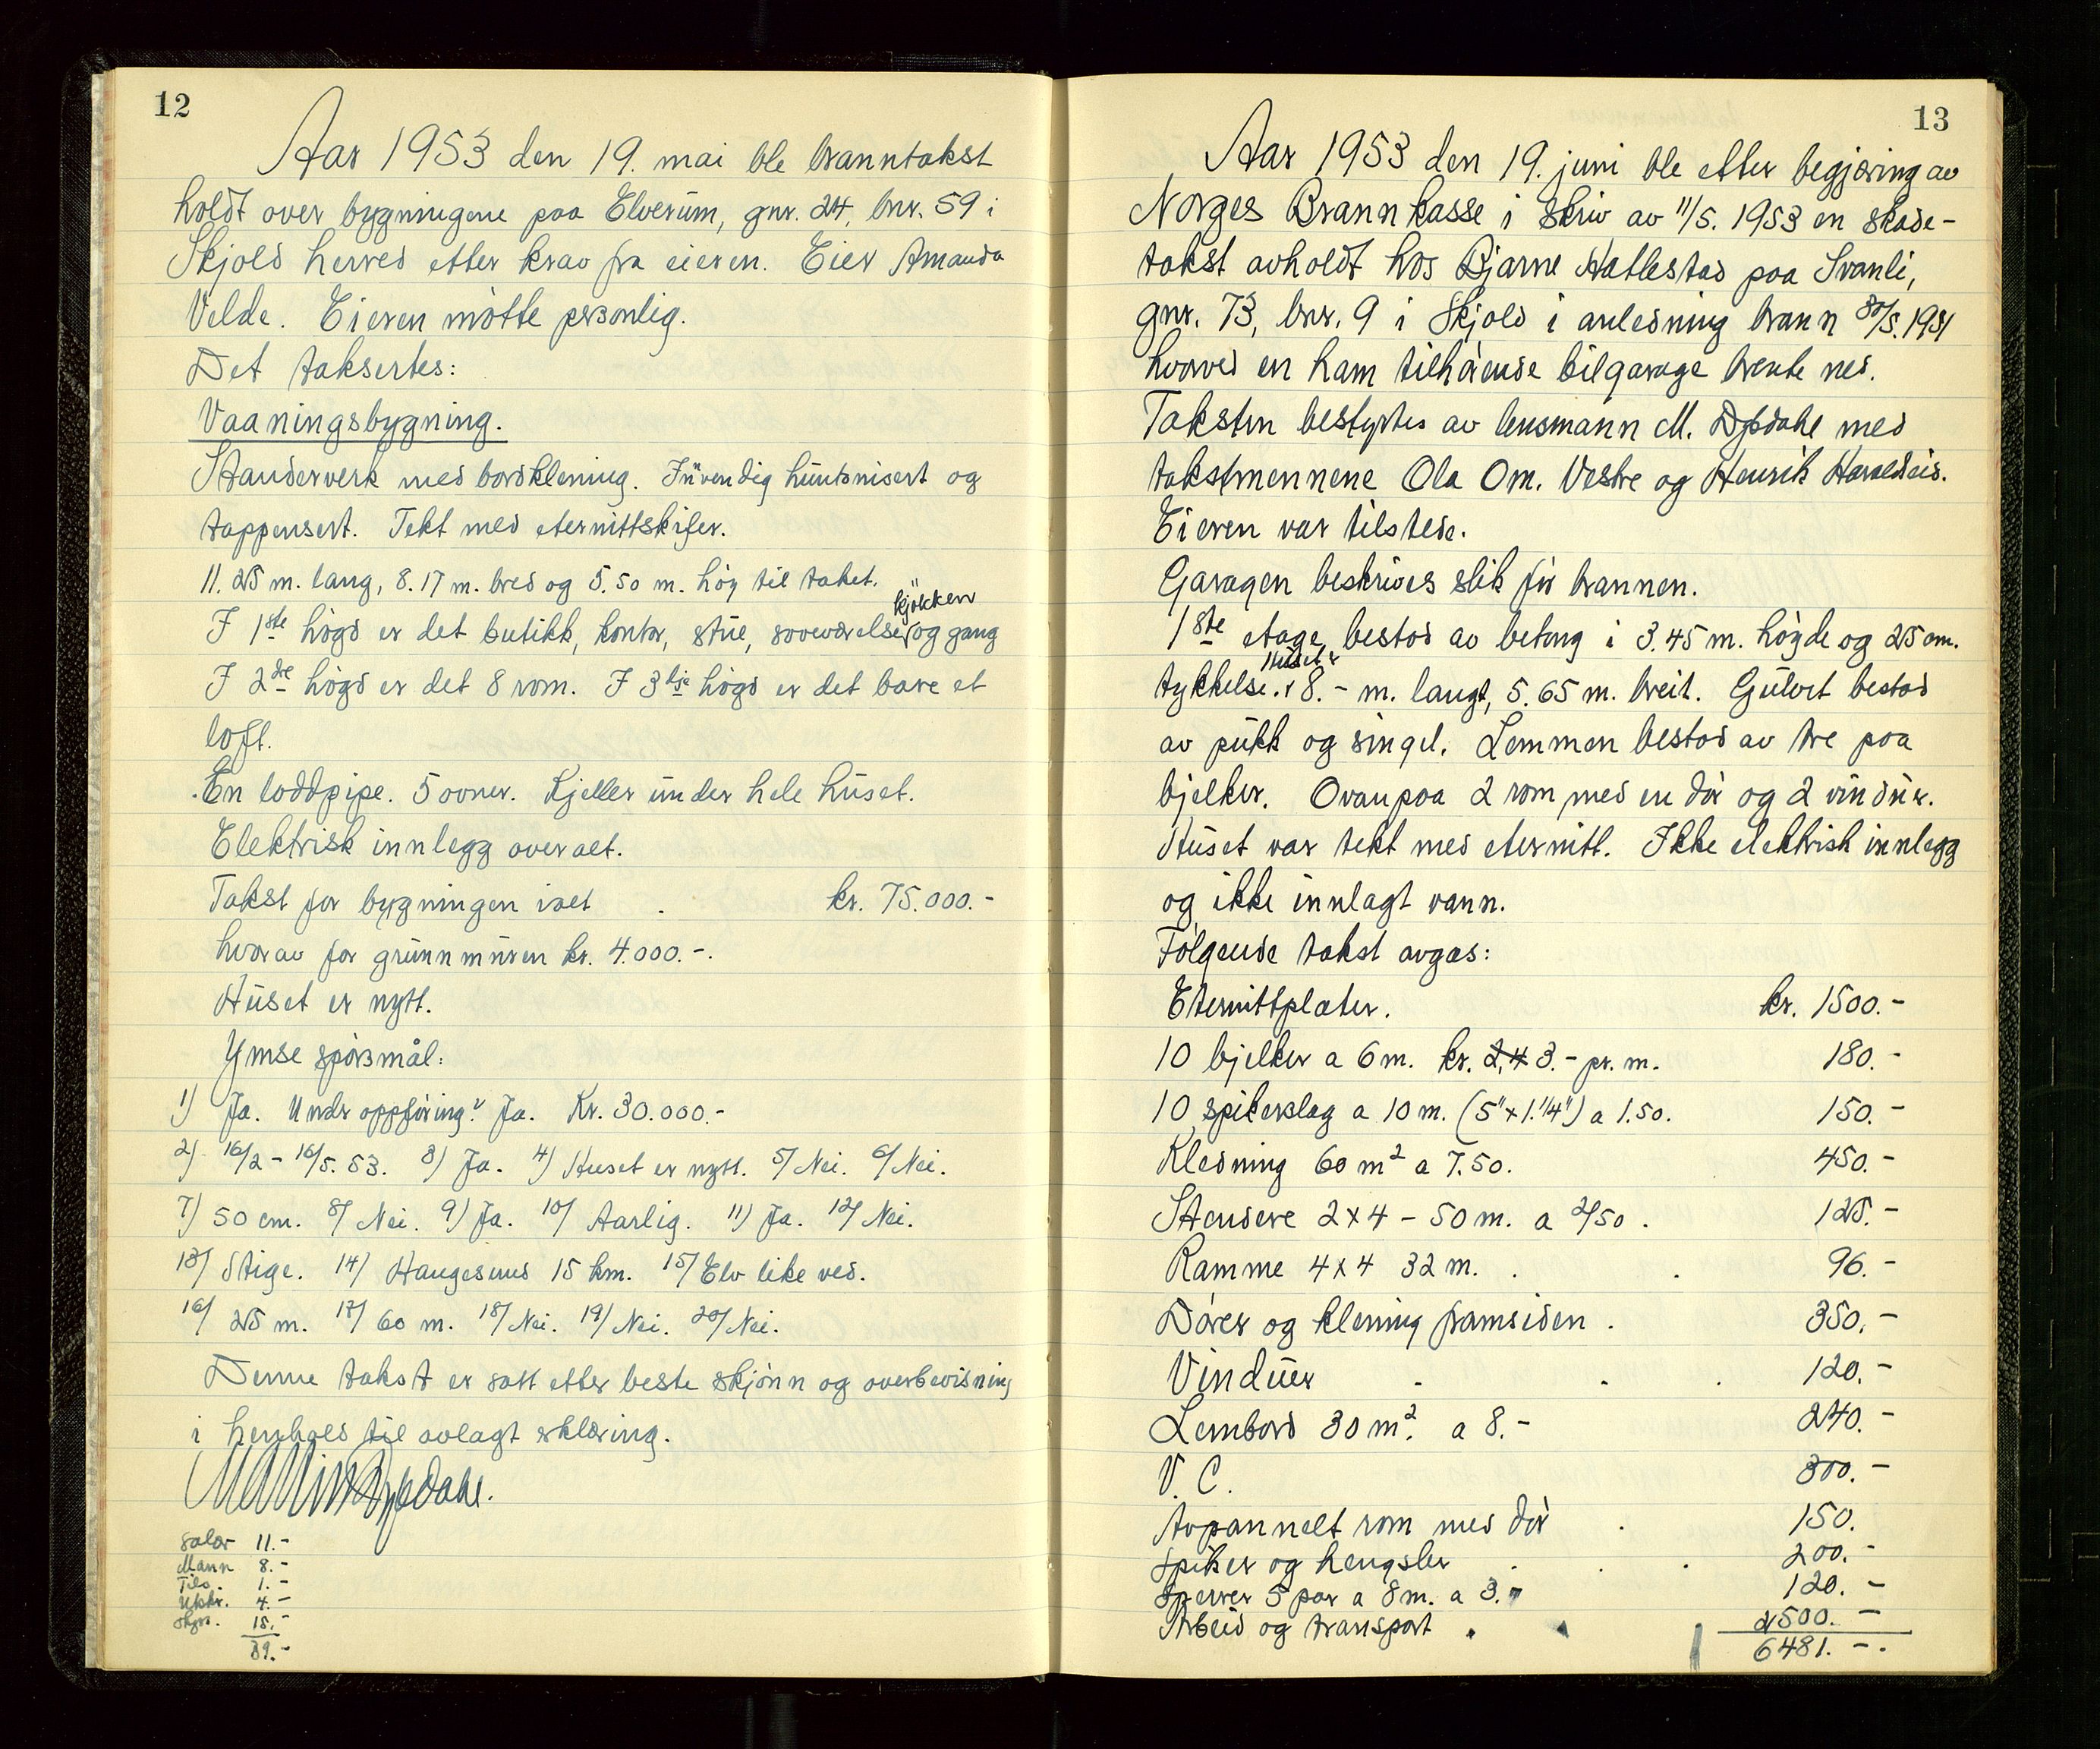 12
Aar 1953 den 19. mai ble branntakst
holdt over bygningene paa Elverum, gnr. 24, bnr. 59 i
Skjold herred etter krav fra eieren. Eier Amanda
Velde. Eieren møtte personlig.
Det taksertes:
Vaaningsbygning.
Standerverk med bordkledning. Innvendig huntonisert og
tappensert. Tekt med eternittskifer.
11.25 m. lang, 8.17 m. bred og 5.50 m. høy til taket.
kjøkken
I 1ste høgd er det butikk, kontor, stue, soveværelse, og gang
I 2de høgd er det 8 rom. I 3dje høgd er det bare et
loft.
En loddpipe. 5 ovner. Kjeller under hele huset.
Elektrisk innlegg overalt.
Takst for bygningen ialt . kr. 75.000.-
hvorav for grunnmuren kr. 4.000.-.
Huset er nytt.
Ymse spørsmål:
1) Ja. Under oppføring? Ja. Kr. 30.000.-
2) 16/2 - 16/5. 53. 3) Ja. 4) Huset er nytt. 5/ Nei. 6/ Nei.
7) 50 cm. 8/ Nei. 9) Ja. 10/ Aarlig. 11) Ja. 12/ Nei.
13/ Stige. 14/ Haugesund 15 km. 15/ Elv like ved.
16/ 25 m. 17/ 60 m. 18/ Nei. 19/ Nei. 20/ Nei.
Denne takst er satt etter beste skjønn og overbevisning
i henhold til avlagt erklæring.
Dypdahl.
Salær 11.-
Mann 8.-
Tils. 1.-
Utskr. 4.-
Skys. 15.-
39.-
13
Aar 1953 den 19. juni ble etter begjæring av
Norges Brannkasse i skriv av 11/5. 1953 en skade-
takst avholdt hos Bjarne Hatlestad paa Svanli,
gnr. 73, bnr. 9 i Skjold i anledning brann 30/5. 1951
hvorved en ham tilhørende bilgarage brente ned.
Taksten bestyrtes av lensmann M. Dypdahl med
takstmennene Ola Om. Vestre og Henrik Haraldseid.
Eieren var tilstede.
Garagen beskrives slik før brannen.
1ste etage bestod av betong i 3.45 m. høyde og 25 cm.
Huset er
tykkelse. 8.- m. langt, 5.65 m. breit. Gulvet bestod
av pukk og singel. Lemmen bestod av tre paa
bjelker. Ovanpaa 2 rom med en dør og 2 vinduer.
Huset var tekt med eternitt. Ikke elektrisk innlegg
og ikke innlagt vann.
Følgende takst avgaes:
Eternittplater. kr. 1500.-
10 bjelker a 6 m. kr. 2,4 3.- pr. m. 180.-
10 spikerslag a 10 m. (5" x 1.1/4") a 1.50. 150.-
Kledning 60 m2 a 7.50. 450.-
Stendere 2x4 - 50 m. a 2/50 . 125.-
Ramme 4x4 32 m. . . 96.-
Dører og kledning framsiden . 350.-
Vinduer . . . 120.-
Lembord 30 m2. a 8.- 240.-
V. C. 300.-
Avpannelt rom med dør . 150.
Spiker og hengsler . . . 200.-
Sperrer 5 par a 8 m. a 3.- 120.-
Arbeid og transport . 2500.-
6481.-.